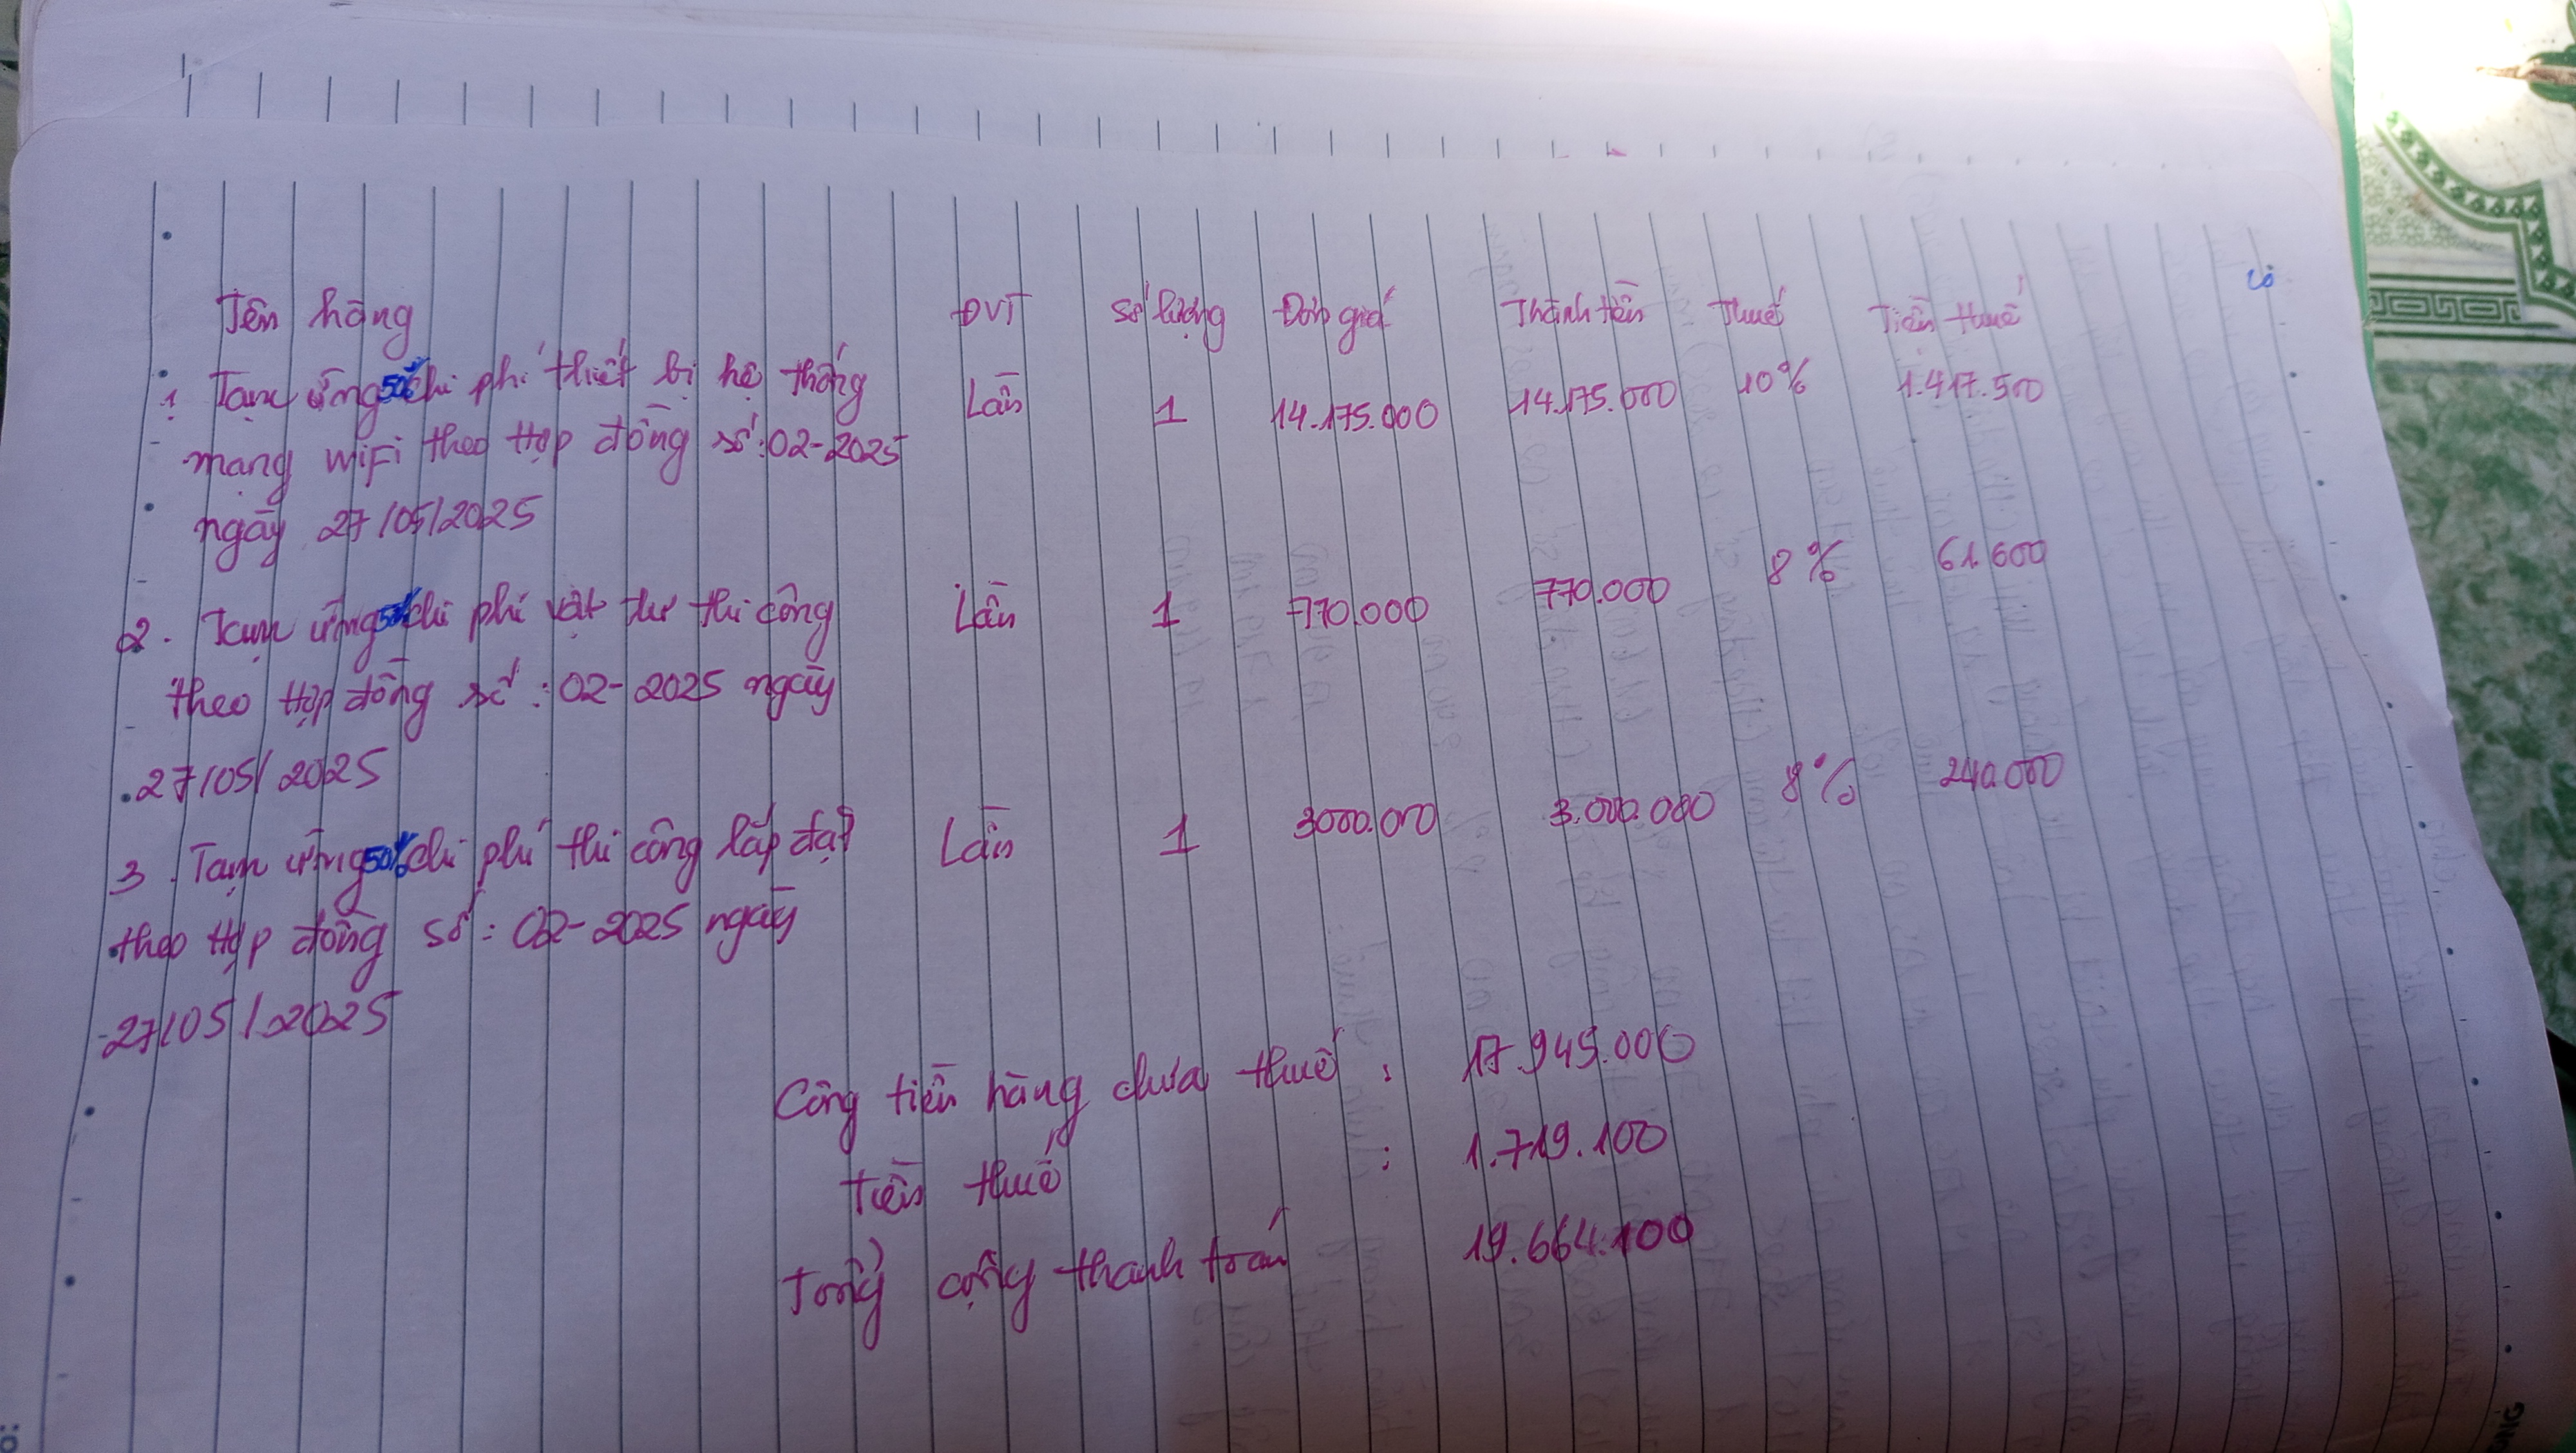 Tên hàng ĐVT Số lượng Đơn giá Thành tiền Thuế Tiền thuế
1. Tạm ứng 50% chi phí thiết bị hệ thống Lần 1 14.175.000 14.175.000 10% 1.417.500
mạng wifi theo Hợp đồng số: 02-2025
ngày 27/05/2025
2. Tạm ứng 50% chi phí vật tư thi công Lần 1 770.000 770.000 8% 61.600
theo Hợp đồng số: 02-2025 ngày
27/05/2025
3. Tạm ứng 50% chi phí thi công lắp đặt Lần 1 3000.000 3.000.000 8% 240.000
theo Hợp đồng số: 02-2025 ngày
27/05/2025
Cộng tiền hàng chưa thuế : 17.945.000
Tiền thuế : 1.719.100
Tổng cộng thanh toán 19.664.100